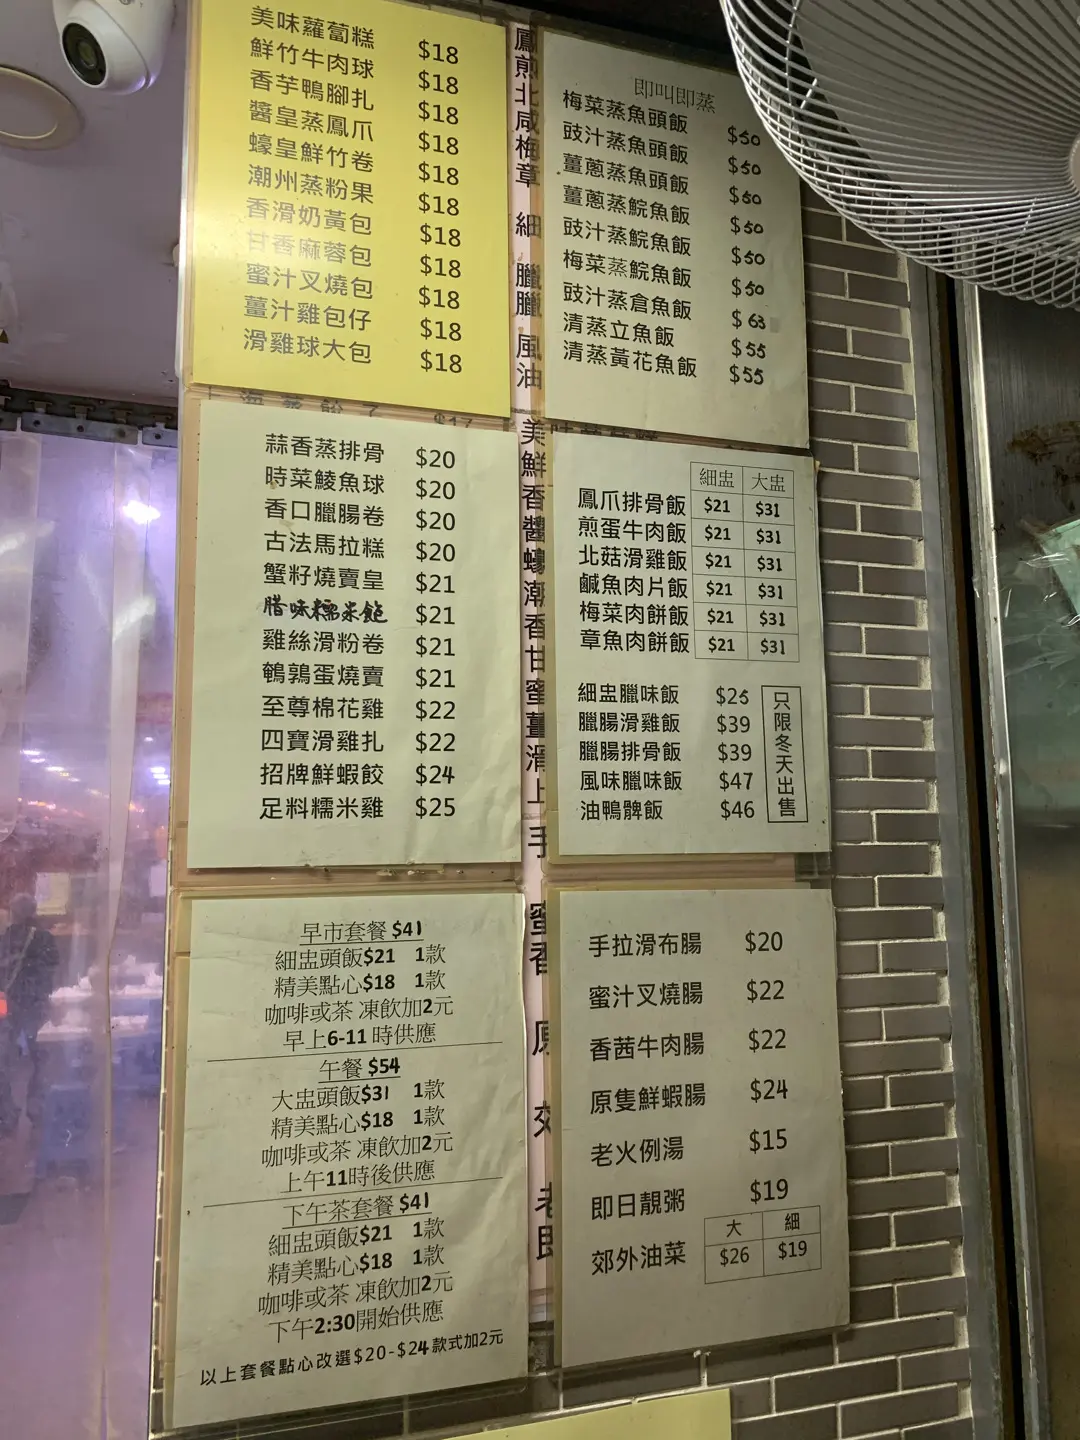 美味蘿蔔糕 $18
鮮竹牛肉球 $18
香芋鴨腳扎 $18
醬皇蒸鳳爪 $18
蠔皇鮮竹卷 $18
潮州蒸粉果 $18
香滑奶黃包 $18
甘香麻蓉包 $18
蜜汁叉燒包 $18
薑汁雞包仔 $18
滑雞球大包 $18
即叫即蒸
梅菜蒸魚頭飯 $50
豉汁蒸魚頭飯 $50
薑蔥蒸魚頭飯 $50
薑蔥蒸鯇魚飯 $50
豉汁蒸鯇魚飯 $50
梅菜蒸鯇魚飯 $50
豉汁蒸倉魚飯 $63
清蒸立魚飯 $55
清蒸黃花魚飯 $55
蒜香蒸排骨 $20
時菜鯪魚球 $20
香口臘腸卷 $20
古法馬拉糕 $20
蟹籽燒賣皇 $21
腊味糯米飽 $21
雞絲滑粉卷 $21
鵪鶉蛋燒賣 $21
至尊棉花雞 $22
四寶滑雞扎 $22
招牌鮮蝦餃 $24
足料糯米雞 $25
細盅 大盅
鳳爪排骨飯 $21 $31
煎蛋牛肉飯 $21 $31
北菇滑雞飯 $21 $31
鹹魚肉片飯 $21 $31
梅菜肉餅飯 $21 $31
章魚肉餅飯 $21 $31
細盅臘味飯 $25
臘腸滑雞飯 $39
臘腸排骨飯 $39
風味臘味飯 $47
油鴨髀飯 $46
只限冬天出售
早市套餐 $41
細盅頭飯$21 1款
精美點心$18 1款
咖啡或茶 凍飲加2元
早上6-11時供應
午餐 $54
大盅頭飯$31 1款
精美點心$18 1款
咖啡或茶 凍飲加2元
上午11時後供應
下午茶套餐 $41
細盅頭飯$21 1款
精美點心$18 1款
咖啡或茶 凍飲加2元
下午2:30開始供應
以上套餐點心改選$20-$24款式加2元
手拉滑布腸 $20
蜜汁叉燒腸 $22
香茜牛肉腸 $22
原隻鮮蝦腸 $24
老火例湯 $15
即日靚粥 $19
大 細
郊外油菜 $26 $19